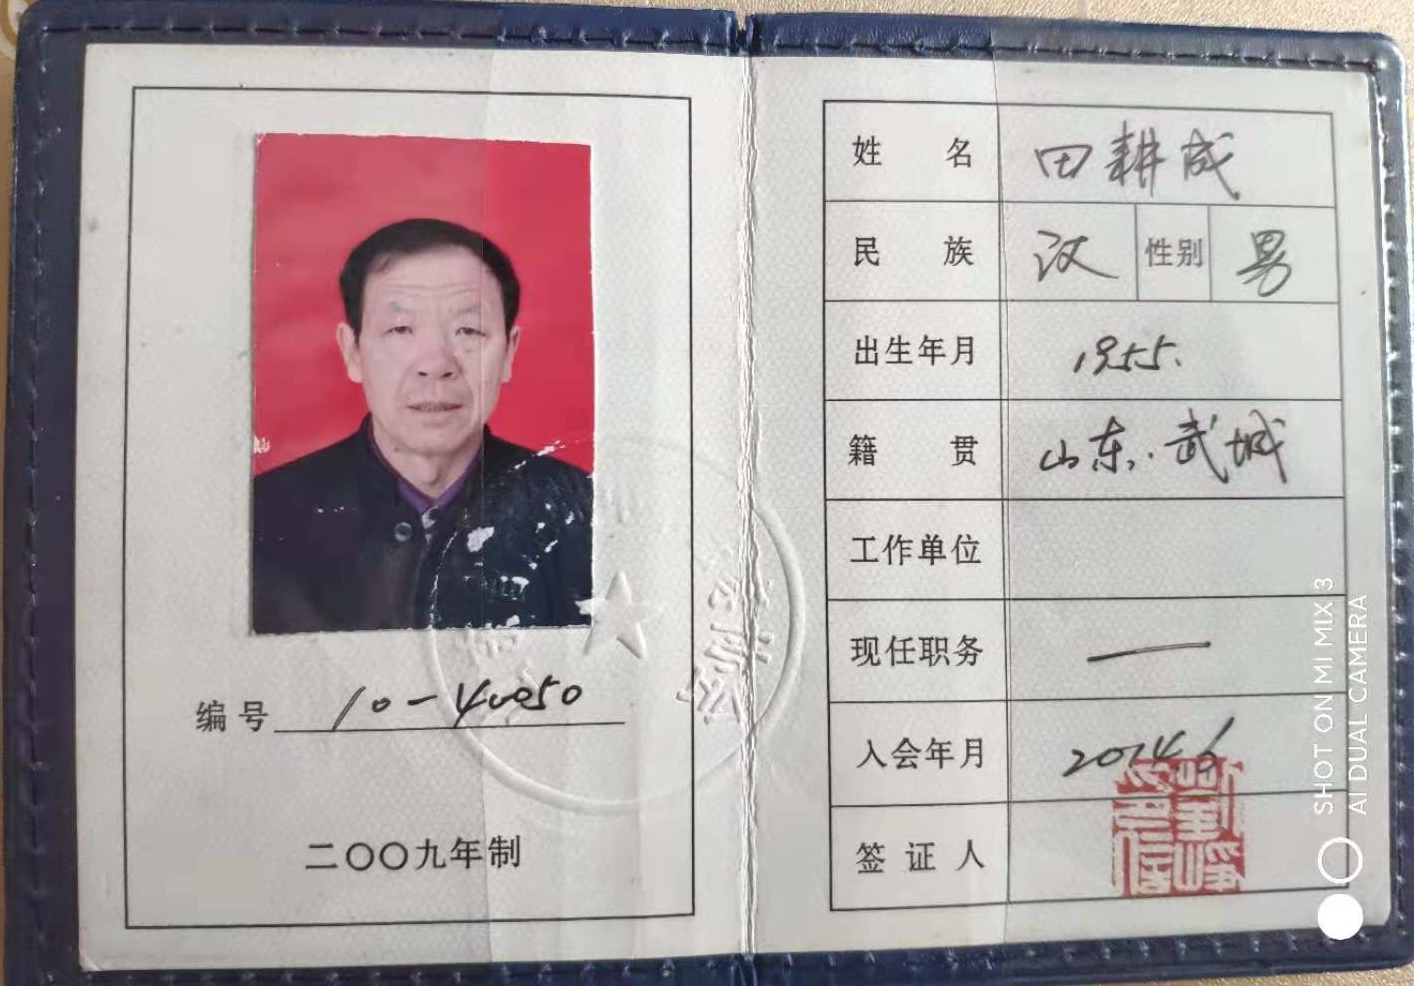 编号 10-40050
二〇〇九年制
姓名 田耕成
民族 汉 性别 男
出生年月 1955.
籍贯 山东.武城
工作单位
现任职务 —
入会年月 2014.6
签证人
SHOT ON MI MIX 3
AI DUAL CAMERA